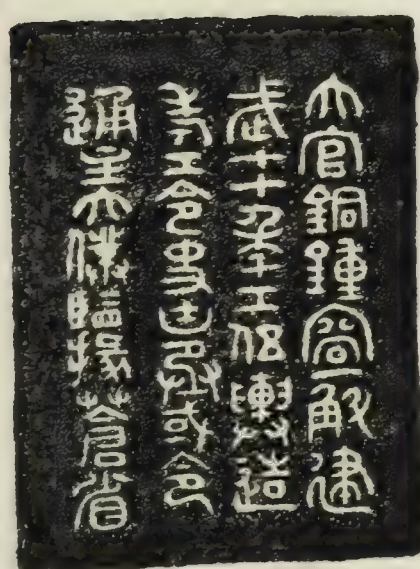 大官銅鍾容一斛建
武廿年工伍輿造
考工令史由丞或令
通主大僕監掾蒼省